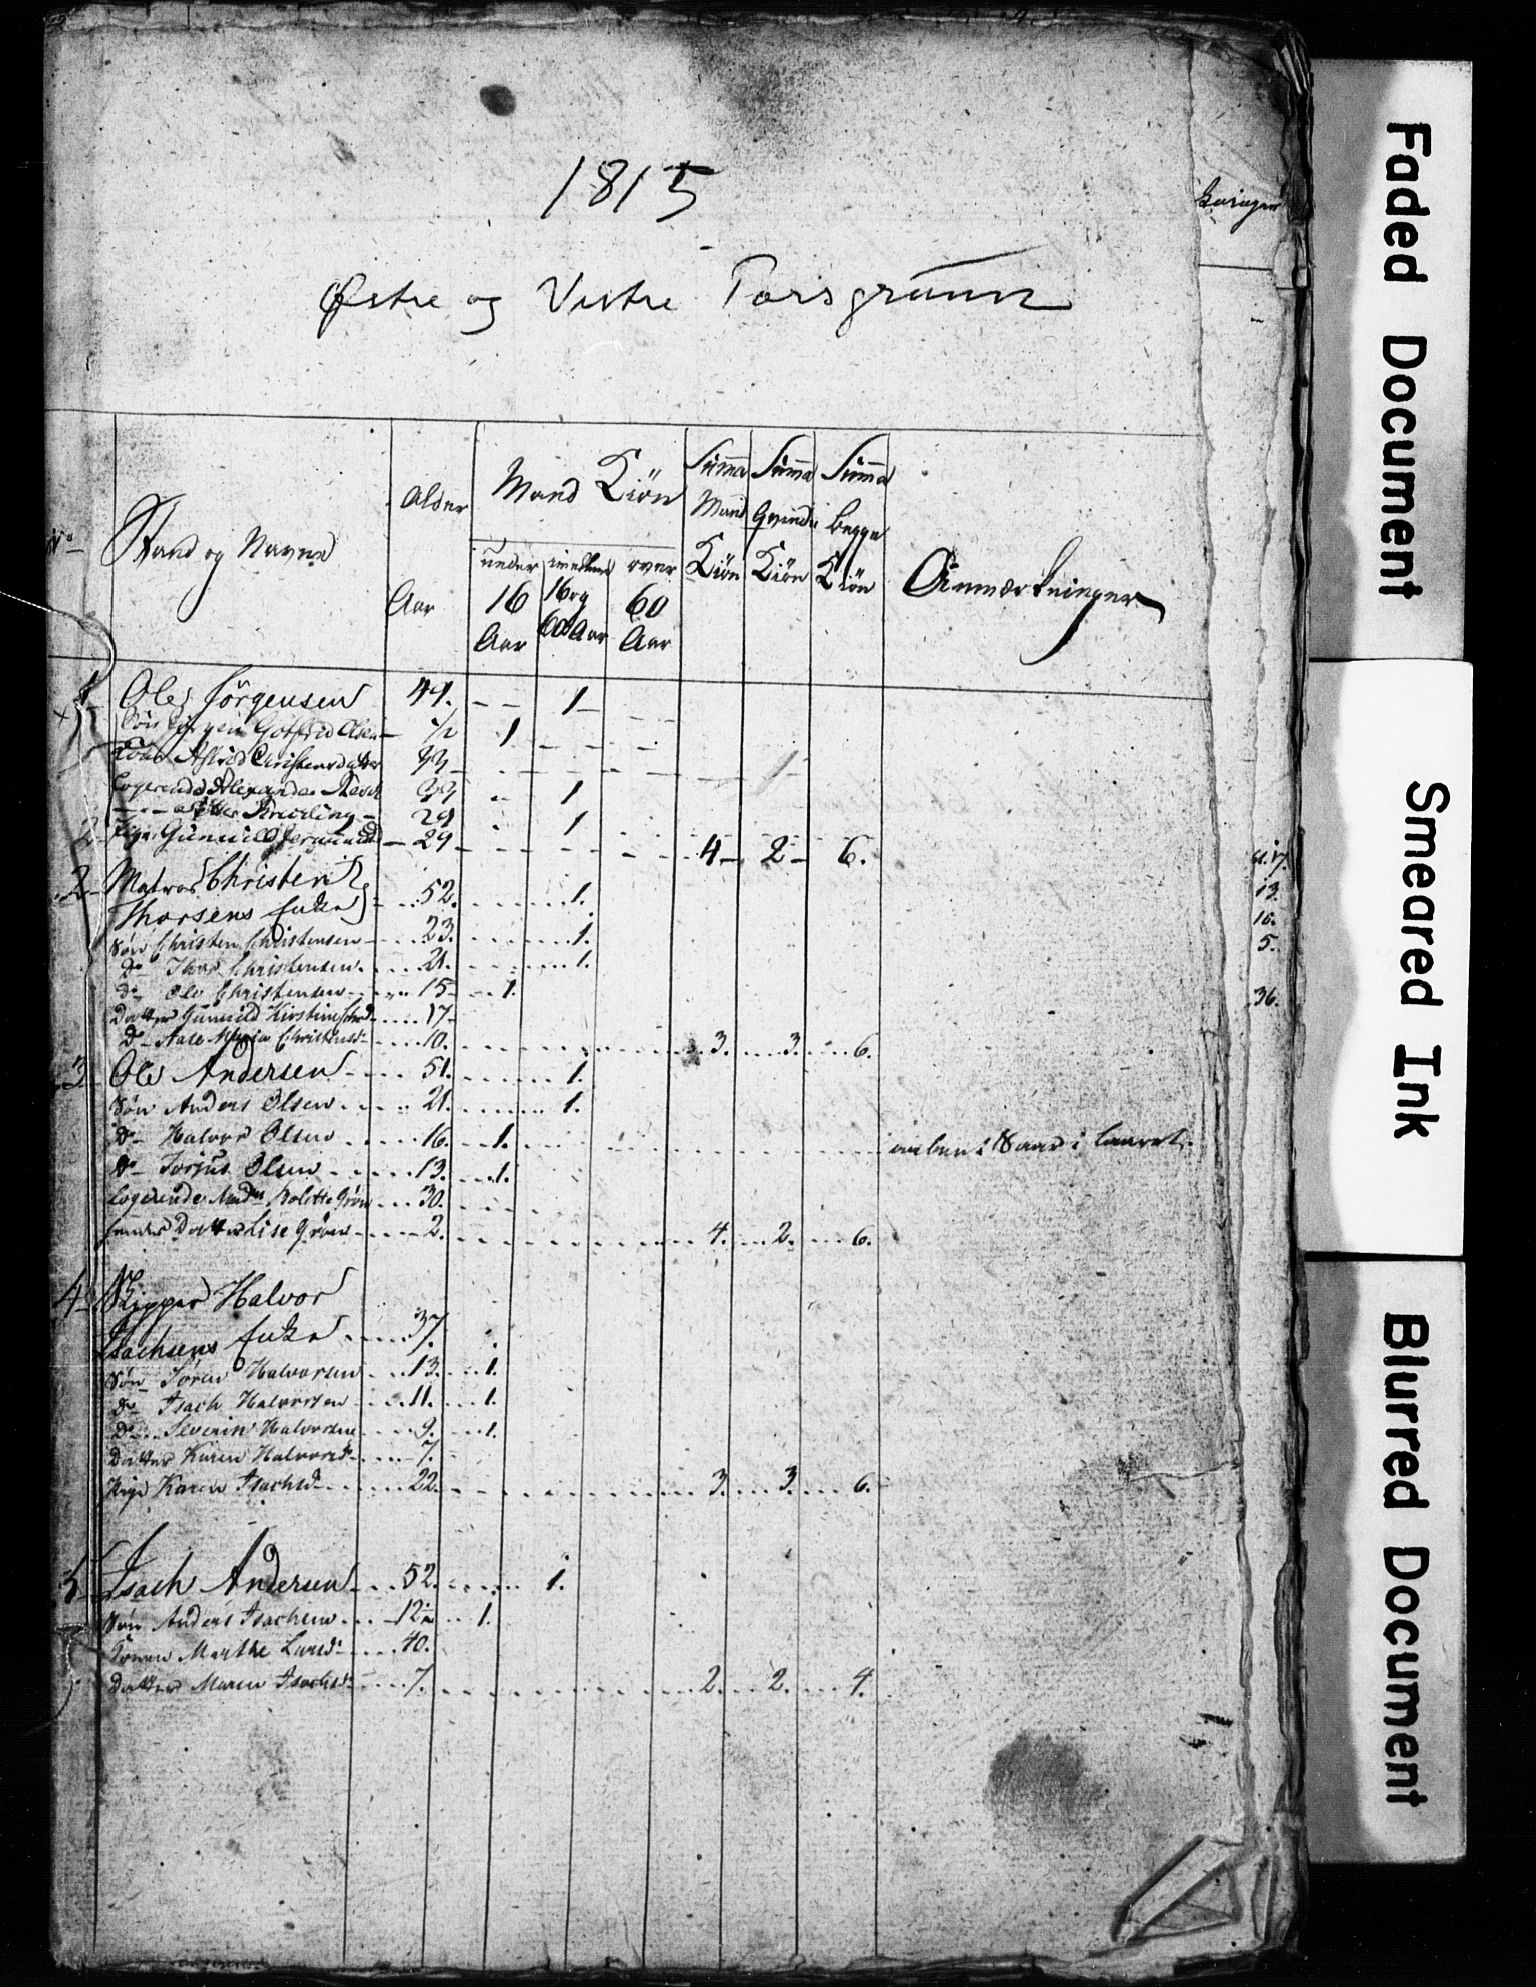 1815
Østre og Vestre Porsgrunn
No Stand og Navne Alder Aar Mand Kiön under 16 Aar imellem 16 og 60 Aar over 60 Aar Summa Mand Kiön Summa Qvinde Kiön Summa begge Kiön Anmærkninger
1 Ole Jörgensen 44. 1
Sön Jörgen Gotfrid Olsen 1/2 1
Kone Astrid Christensdatter 33 1
Logerende Alexander 33 1
29 1
Pige Gunnild 29 4 2 6.
2 Matros Christen
Thorsens Enke 52. 1.
Sön Christen Christensen 23. 1.
do Thor Christensen 21. 1.
do Ole Christensen 15 1.
Datter Gunnild Kirstine 17
do Aase Maria Christensd 10. 3. 3. 6.
3 Ole Andersen 51. 1.
Sön Anders Olsen 21. 1.
do Halvor Olsen 16. 1. i Saar i Laaret.
do Torjus Olsen 13. 1.
Logerende Mad Bolette Grön 30.
hendes Datter Lise Grön 2. 4. 2. 6.
4 Skipper Halvor
Isachsens Enke 37.
Sön Sören Halvorsen 13. 1.
do Isach Halvorsen 11. 1.
do Severin Halvorsen 9. 1.
Datter Karen Halvorsd 7.
Pige Karen Isachsd 22. 3. 3. 6.
5 Isach Andersen 52. 1.
Sön Anders Isachsen 12 1.
Konen Marthe Larsd 40.
Datter Maren Isachsd 7. 2. 2. 4.
13.
10.
5.
36.
Faded Document
Smeared Ink
Blurred Document